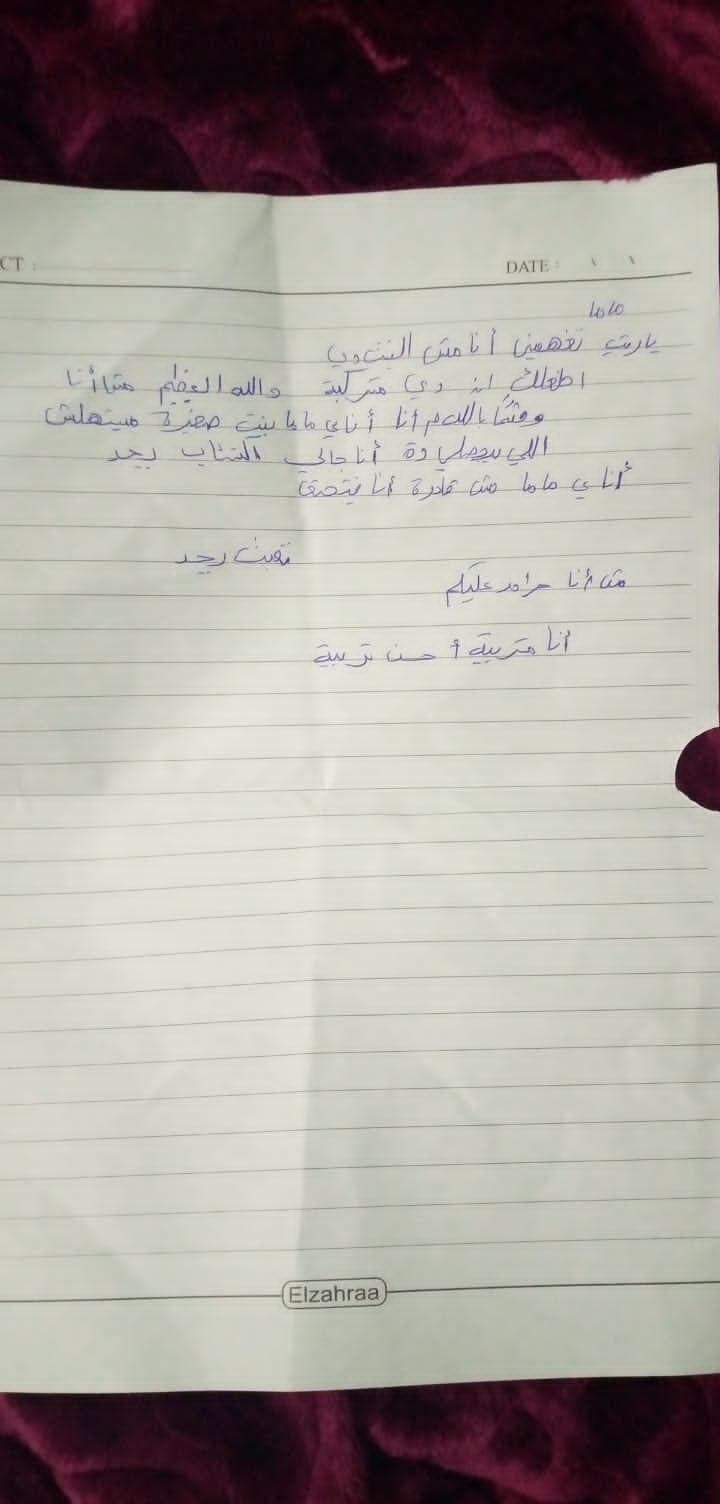 CT :
DATE : \ \
ماما
ياريت تفهمين أنا مش البنت دي
اطفلك ان دي متركبة والله العظيم مش أنا
وقسمًا بالله م أنا أناي ماما بنت صغيرة ميتهلش
اللي بيحصلي دة أنا جالي اكتئاب بجد
أناي ماما مش قادرة أنا بتخنق
تعبت بجد
مش أنا حرام عليكم
أنا متربية أحسن تربية
Elzahraa